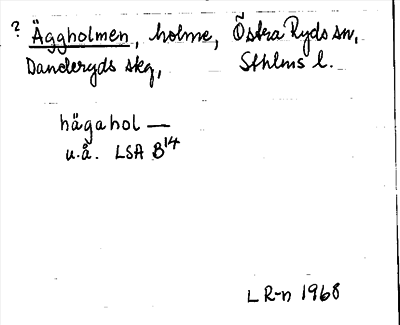 ? Äggholmen, holme, Östra Ryds sn,
Danderyds skg, Sthlms l.
hägahol —
u.å. LSA B14
LR-n 1968